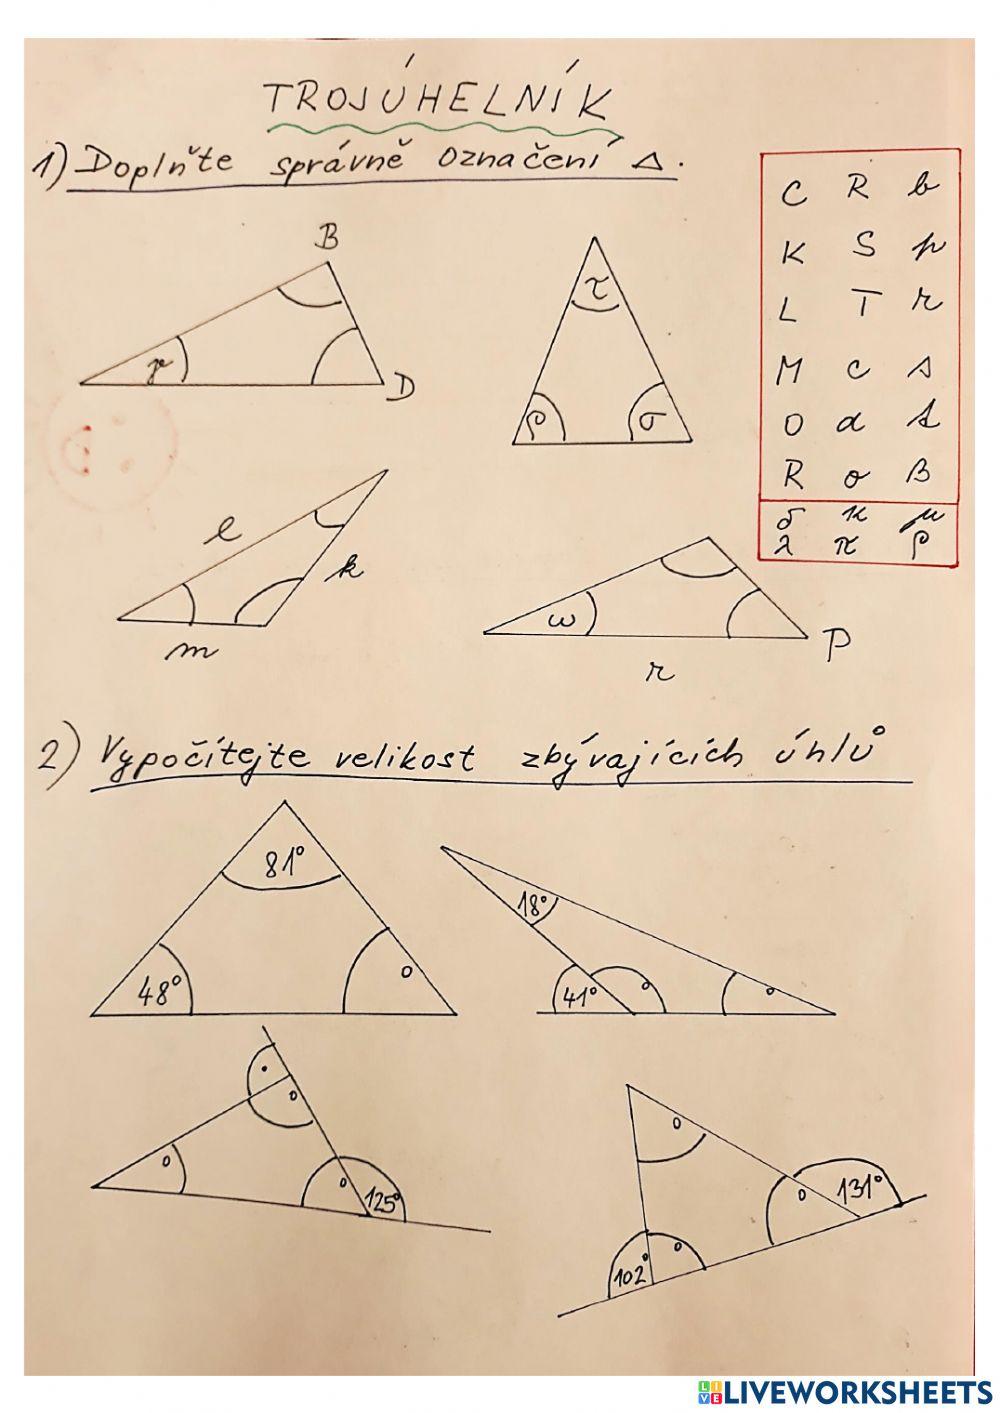 TROJÚHELNÍK
1) Doplňte správně označení △.
C R b
K S p
L T r
M c s
O d t
R o β
δ κ μ
λ π ρ
B
γ
D
τ
ρ σ
l
k
m
ω
P
r
2) Vypočítejte velikost zbývajících úhlů
81°
48° °
18°
41° ° °
.
°
° ° 125°
°
° 131°
102° °
LIVEWORKSHEETS